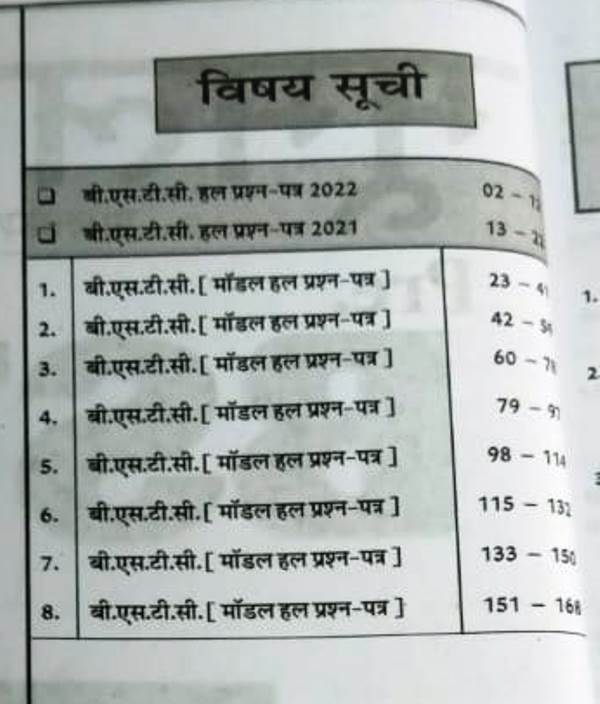 विषय सूची
❑ बी.एस.टी.सी. हल प्रश्न-पत्र 2022 02 - 12
❑ बी.एस.टी.सी. हल प्रश्न-पत्र 2021 13 - 22
1. बी.एस.टी.सी.[ मॉडल हल प्रश्न-पत्र ] 23 - 41
2. बी.एस.टी.सी.[ मॉडल हल प्रश्न-पत्र ] 42 - 59
3. बी.एस.टी.सी.[ मॉडल हल प्रश्न-पत्र ] 60 - 78
4. बी.एस.टी.सी.[ मॉडल हल प्रश्न-पत्र ] 79 - 97
5. बी.एस.टी.सी.[ मॉडल हल प्रश्न-पत्र ] 98 - 114
6. बी.एस.टी.सी.[ मॉडल हल प्रश्न-पत्र ] 115 - 132
7. बी.एस.टी.सी.[ मॉडल हल प्रश्न-पत्र ] 133 - 150
8. बी.एस.टी.सी.[ मॉडल हल प्रश्न-पत्र ] 151 - 168
1.
2.